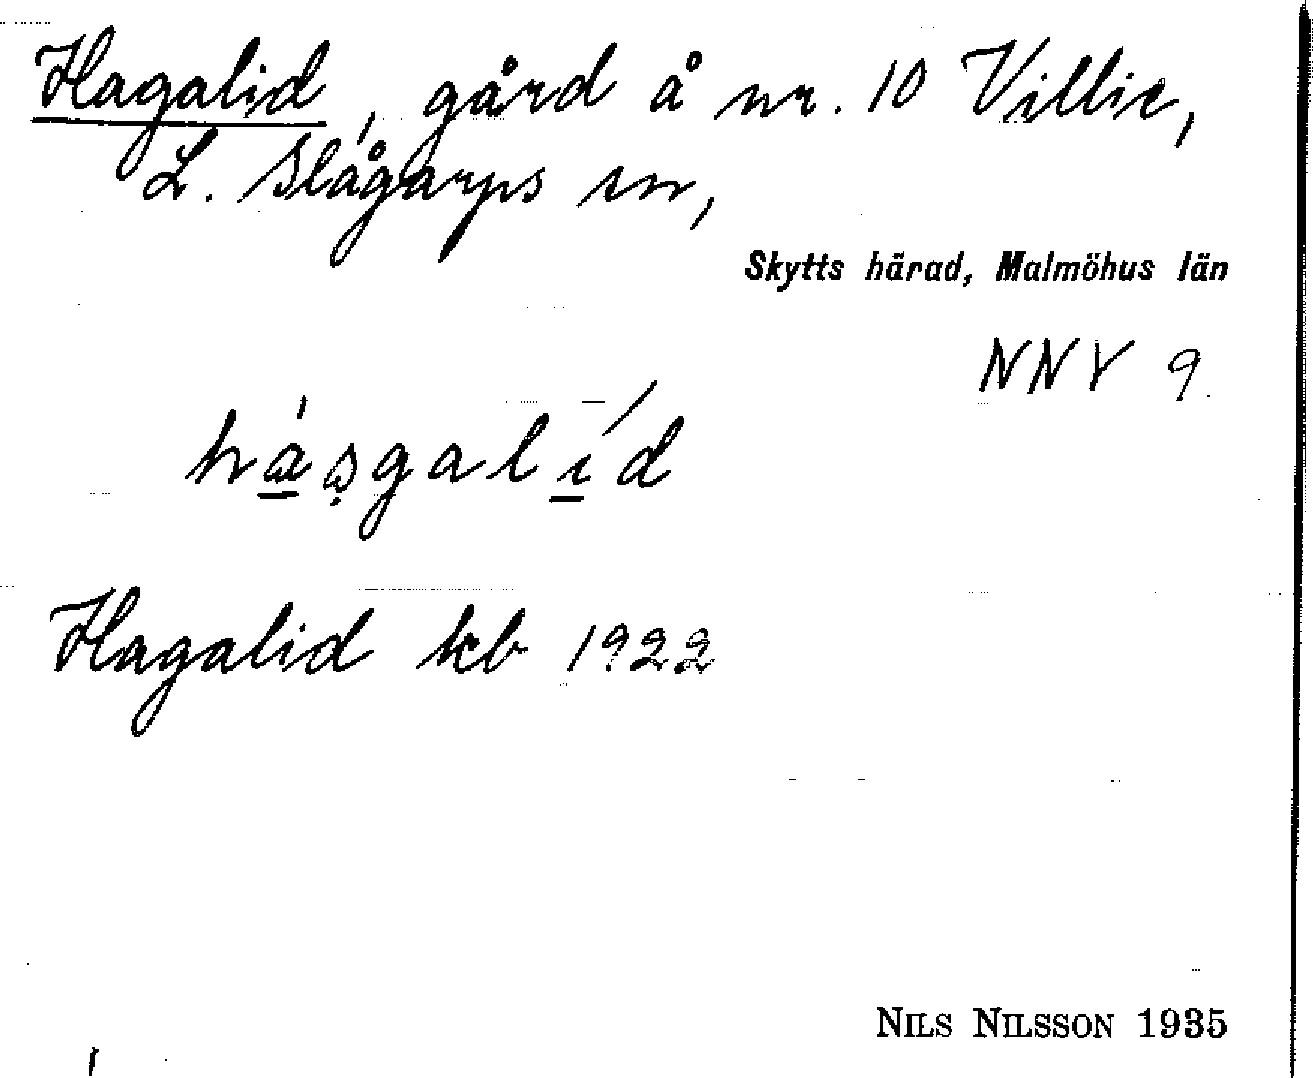 Hagalid, gård å nr. 10 Villie,
L. Slågarps sn,
Skytts härad, Malmöhus län
NNV 9.
Hagalid kb 1922
NILS NILSSON 1935